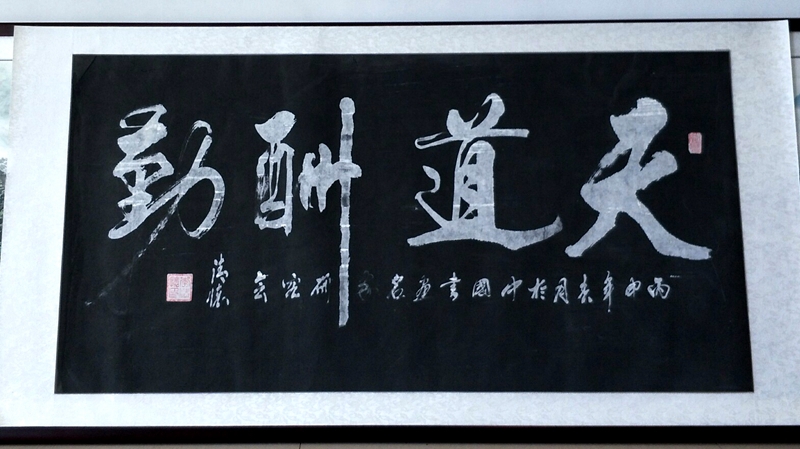 天道酬勤
丙申年春月於中國書畫家研究会